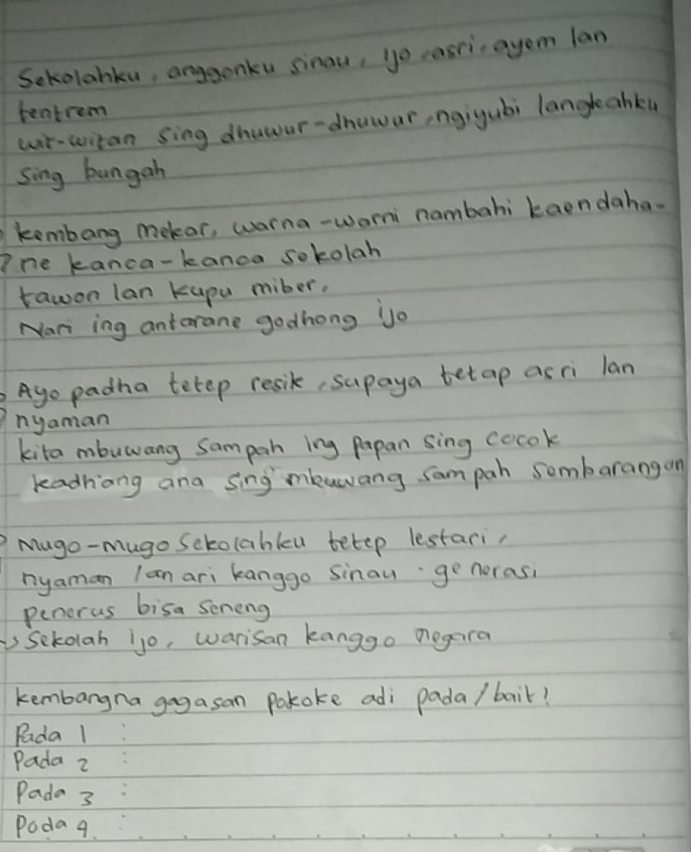 Sekolahku, anggonku sinau, ijo, asri, ayem lan
tentrem
wit-witan sing dhuwur-dhuwur, ngiyubi langkahku
sing bungah
kembang mekar, warna-warni nambahi kaendaha-
ne kanca-kanca sekolah
tawon lan kupu miber,
Nari ing antarane godhong ijo
Ayo padha tetep resik, supaya tetap asri lan
nyaman
kita mbuwang sampah ing papan sing cocok
kadhang ana sing mbuwang sampah sembarangan
Mugo-mugo Sekolahku tetep lestari,
nyaman lan ari kanggo sinau. generasi
penerus bisa seneng
Sekolah ijo, warisan kanggo negara
kembangna gagasan pokoke adi pada/bait!
Pada 1 :
Pada 2 :
Pada 3 :
Pada 4 :